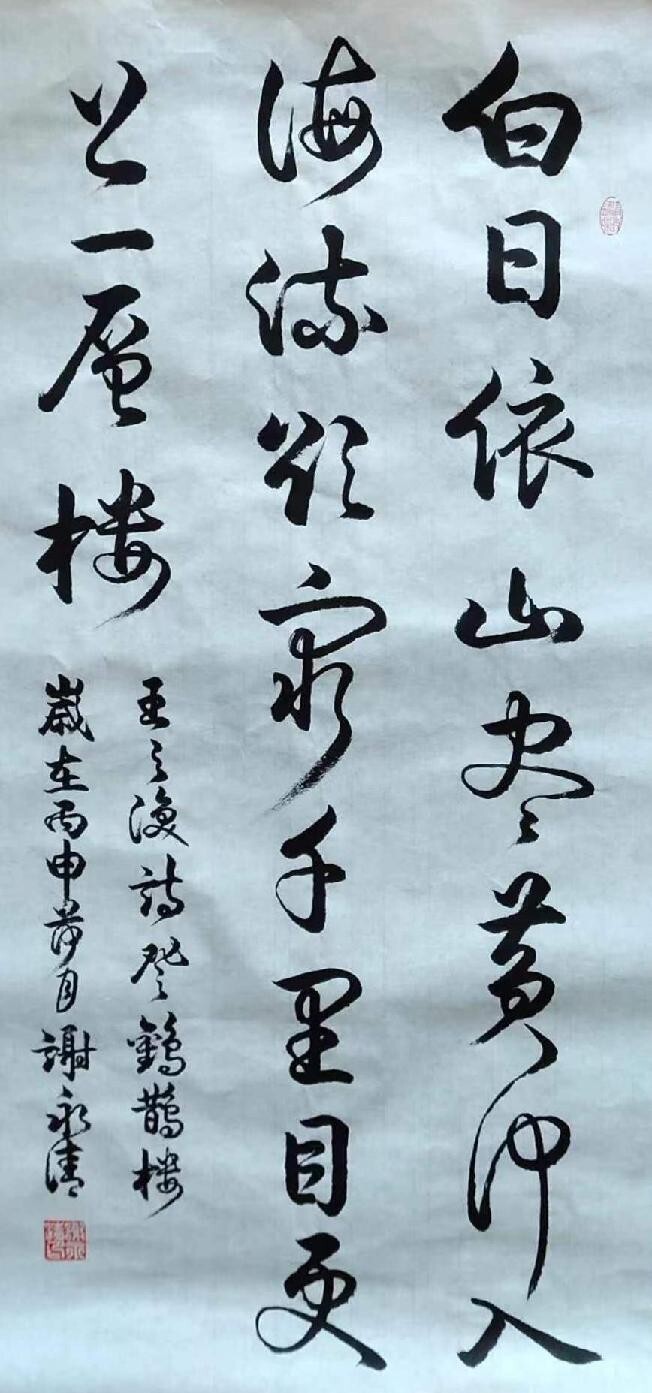 白日依山尽黄河入
海流欲穷千里目更
上一层楼
王之涣诗登鹳鹊楼
岁在丙申荷月谢永清